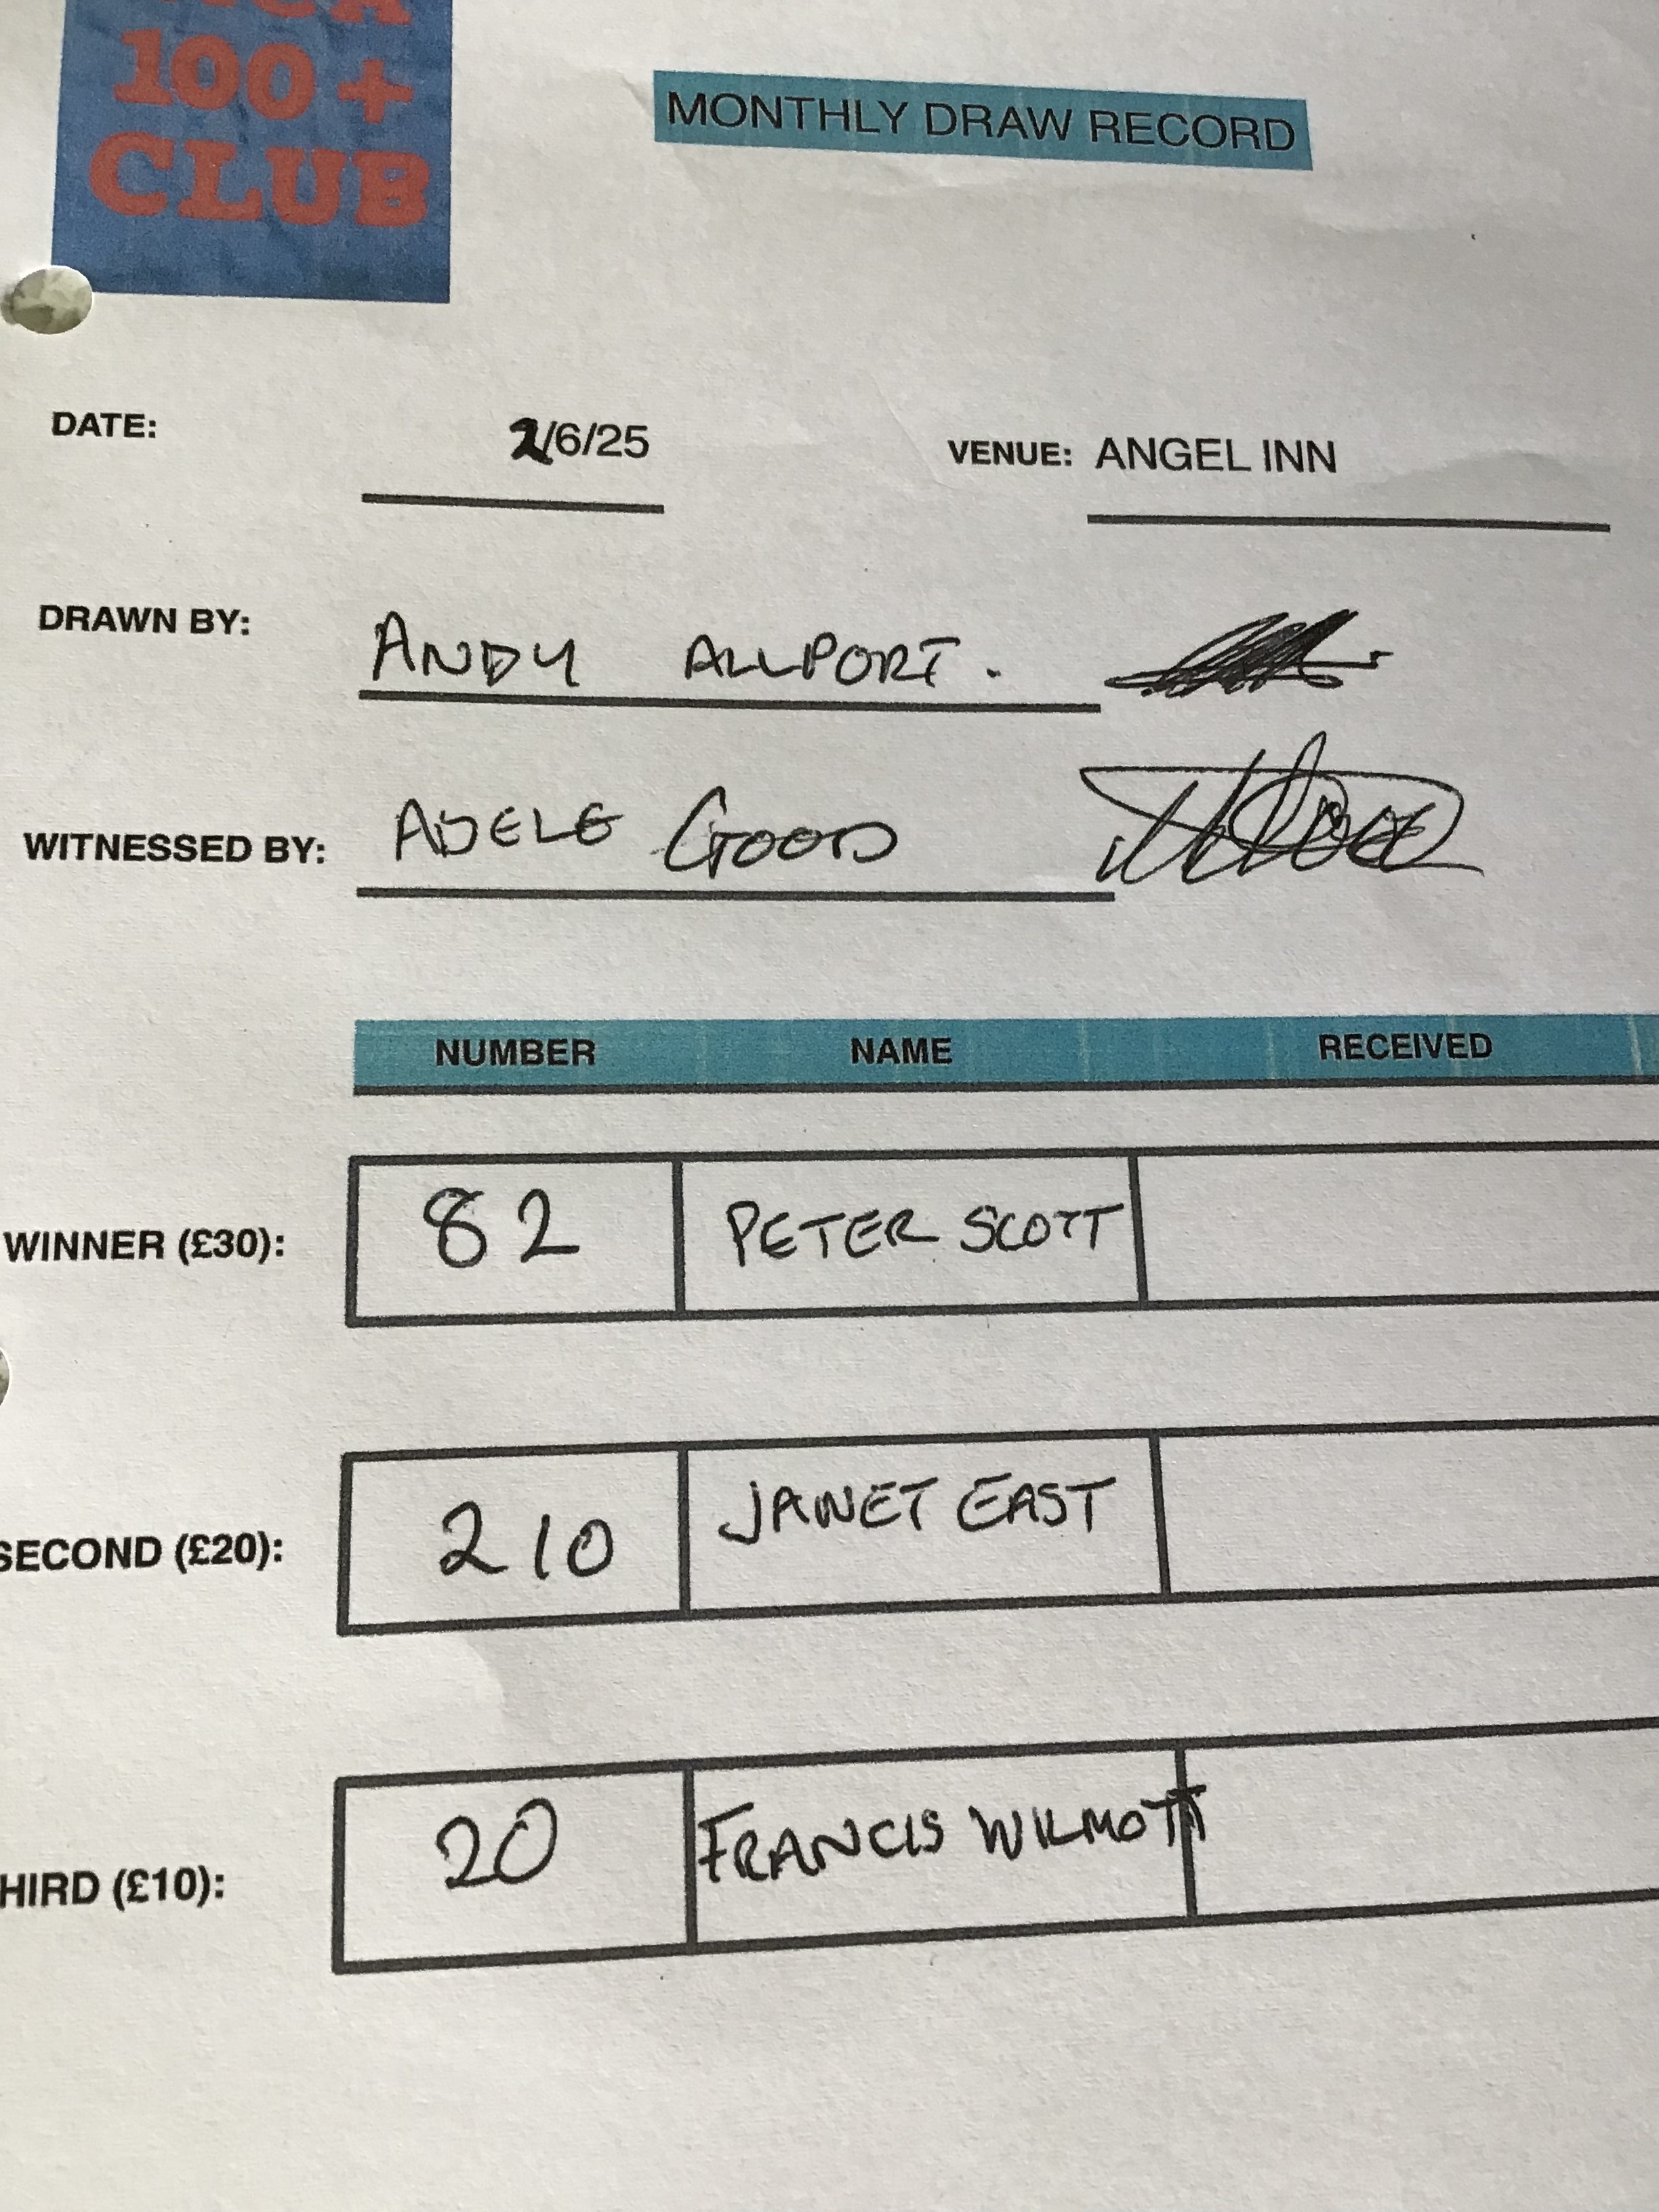 100+
CLUB
MONTHLY DRAW RECORD
DATE: 2/6/25 VENUE: ANGEL INN
DRAWN BY: ANDY ALLPORT.
WITNESSED BY: ADELE GOOD
NUMBER NAME RECEIVED
WINNER (£30): 82 PETER SCOTT
SECOND (£20): 210 JANET EAST
HIRD (£10): 20 FRANCIS WILMOTT